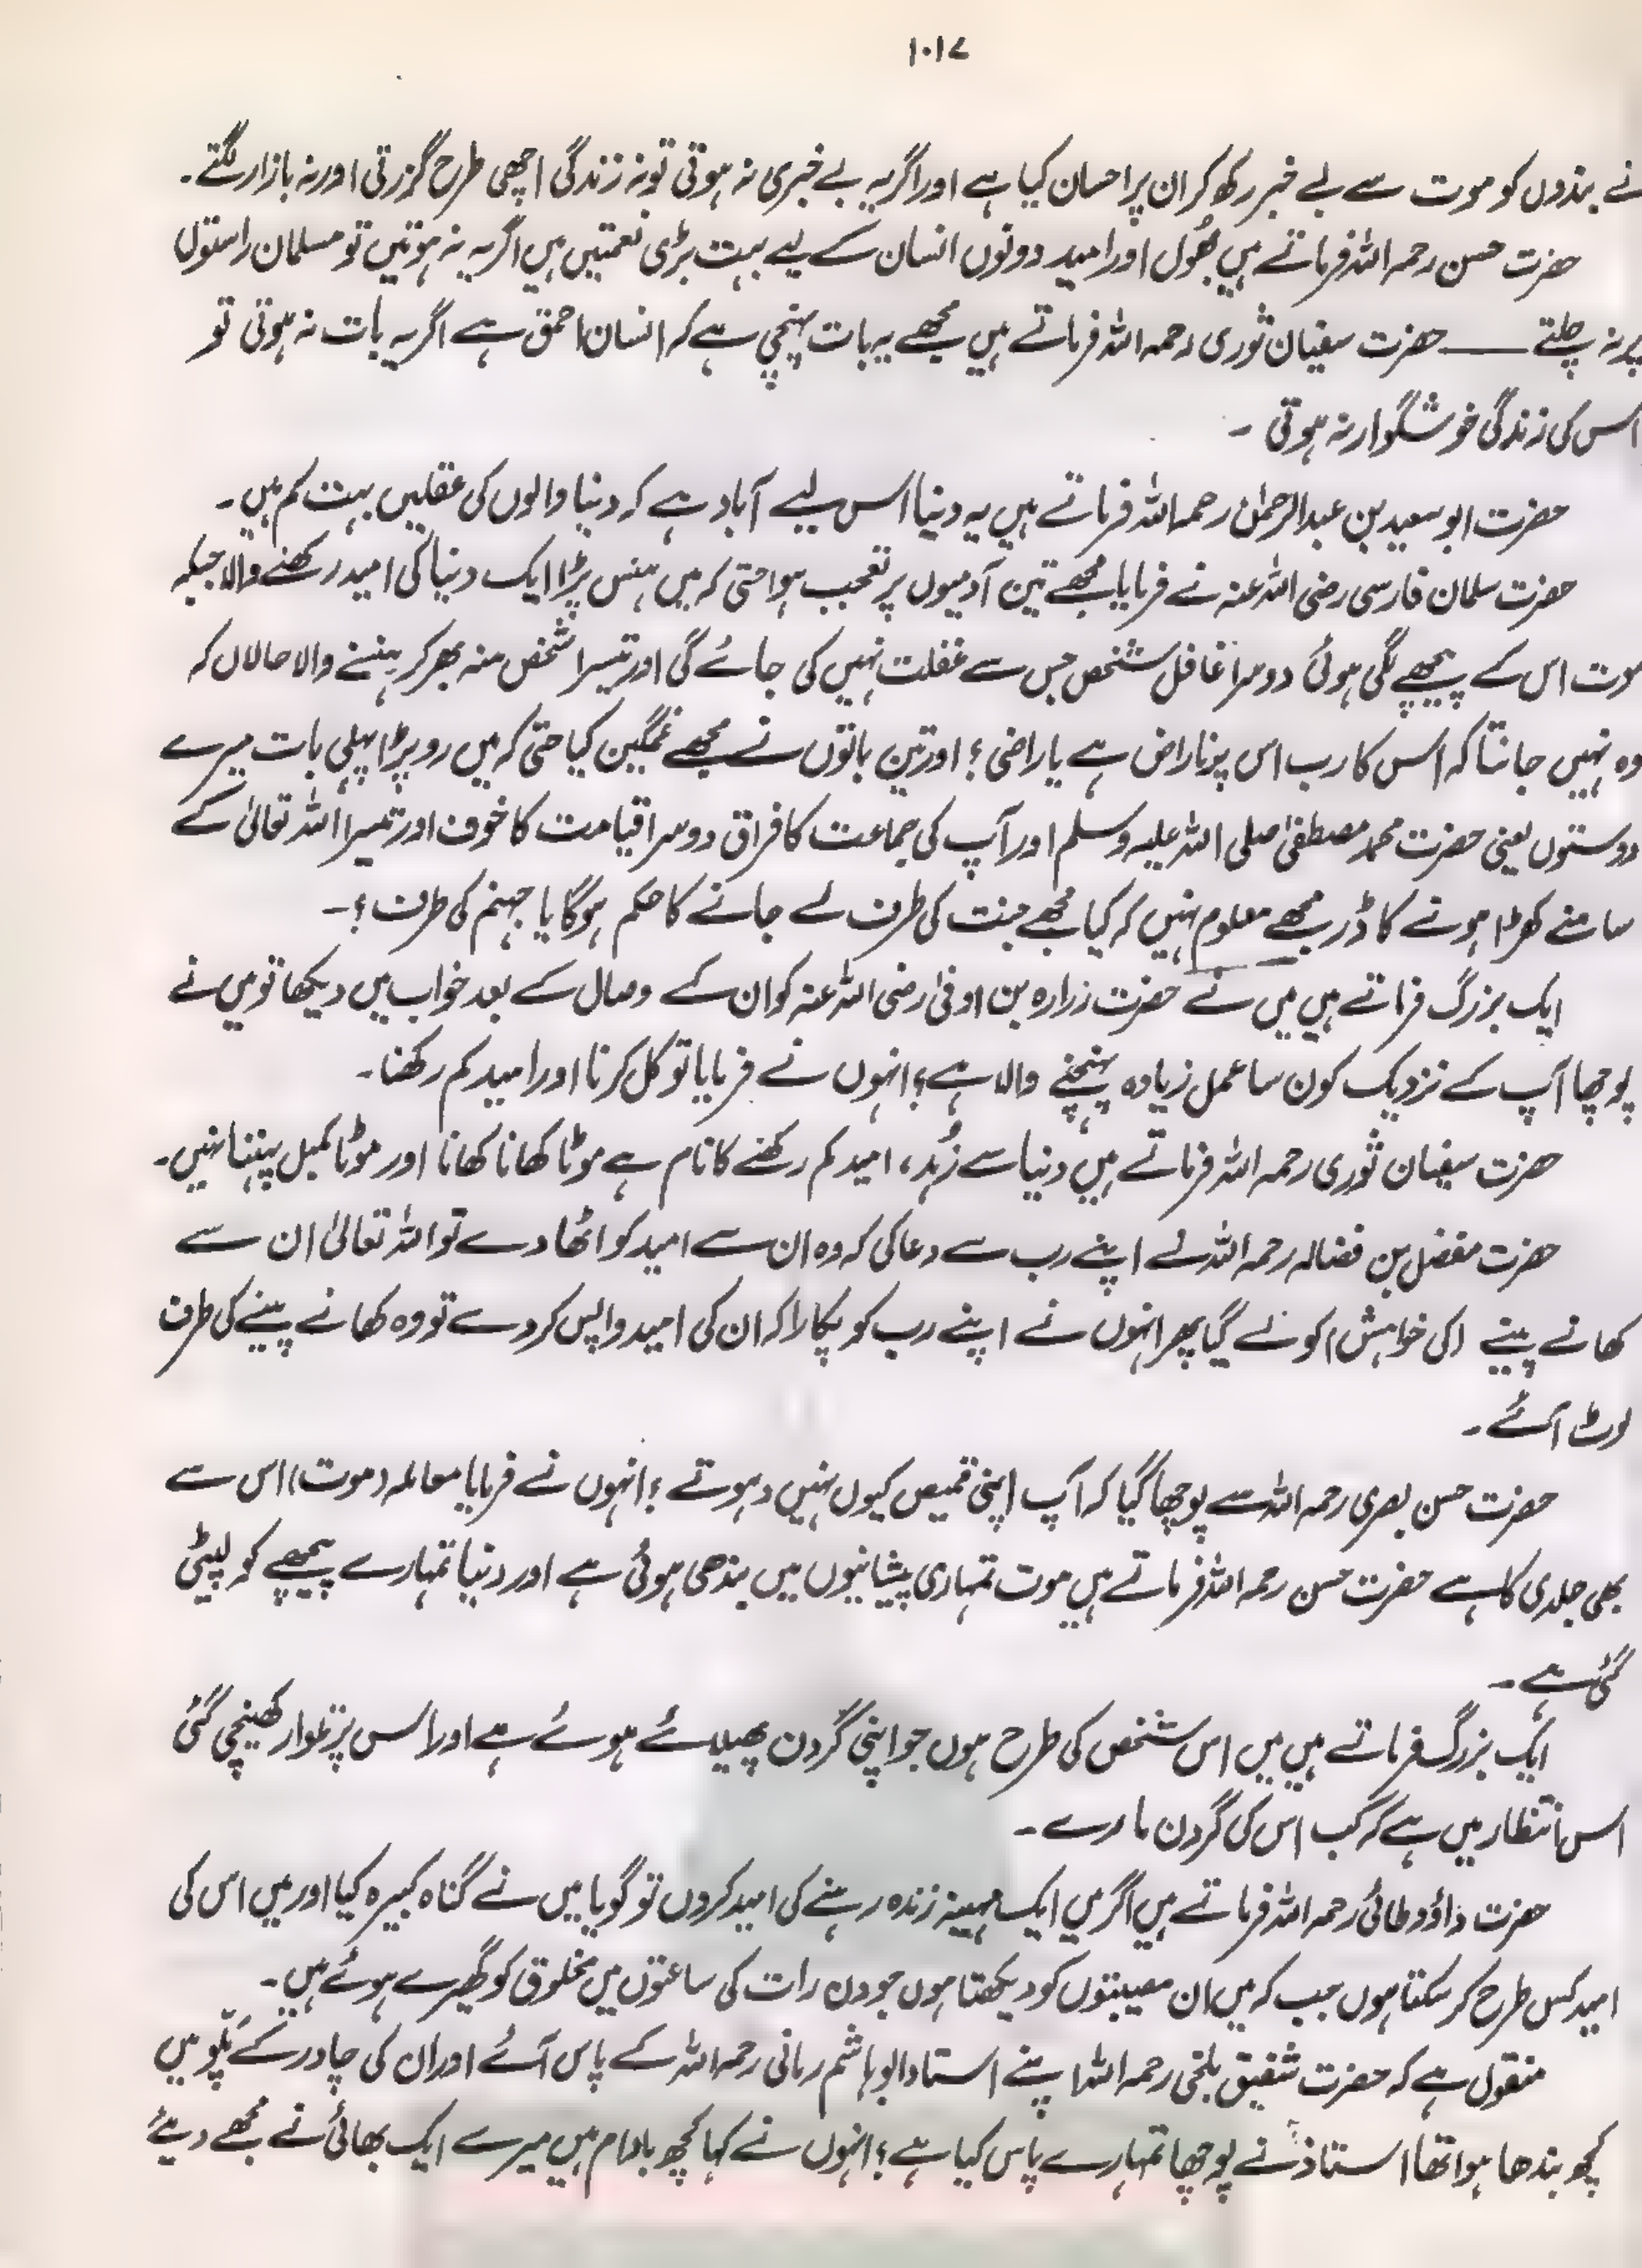 ۱۰۱۷
نے بندوں کو موت سے بے خبر رکھ کر ان پر احسان کیا ہے اور اگر یہ بے خبری نہ ہوتی تو نہ زندگی اچھی طرح گزرتی اور نہ بازار لگتے۔
حضرت حسن رحمہ اللہ فرماتے ہیں بُھول اور امید دونوں انسان کے لیے بہت بڑی نعمتیں ہیں اگر یہ نہ ہوتیں تو مسلمان راستوں
پر نہ چلتے ——— حضرت سفیان ثوری رحمہ اللہ فرماتے ہیں مجھے یہ بات پہنچی ہے کہ انسان احمق ہے اگر یہ بات نہ ہوتی تو
اس کی زندگی خوشگوار نہ ہوتی ۔
حضرت ابو سعید بن عبدالرحمٰن رحمہ اللہ فرماتے ہیں یہ دنیا اس لیے آباد ہے کہ دنیا والوں کی عقلیں بہت کم ہیں۔
حضرت سلمان فارسی رضی اللہ عنہ نے فرمایا مجھے تین آدمیوں پر تعجب ہوا حتی کہ میں ہنس پڑا ایک دنیا کی امید رکھنے والا جبکہ
موت اس کے پیچھے لگی ہوئی دوسرا غافل شخص جس سے غفلت نہیں کی جائے گی اور تیسرا شخص منہ بھر کر ہنسنے والا حالاں کہ
وہ نہیں جانتا کہ اس کا رب اس پر ناراض ہے یا راضی؟ اور تین باتوں نے مجھے غمگین کیا حتی کہ میں رو پڑا پہلی بات میرے
دوستوں یعنی حضرت محمد مصطفیٰ صلی اللہ علیہ وسلم اور آپ کی جماعت کا فراق دوسرا قیامت کا خوف اور تیسرا اللہ تعالیٰ کے
سامنے کھڑا ہونے کا ڈر مجھے معلوم نہیں کہ کیا مجھے جنت کی طرف لے جانے کا حکم ہوگا یا جہنم کی طرف؟۔
ایک بزرگ فرماتے ہیں میں نے حضرت زرارہ بن اوفیٰ رضی اللہ عنہ کو ان کے وصال کے بعد خواب میں دیکھا تو میں نے
پوچھا آپ کے نزدیک کون سا عمل زیادہ پہنچنے والا ہے؟ انہوں نے فرمایا توکل کرنا اور امید کم رکھنا۔
حضرت سفیان ثوری رحمہ اللہ فرماتے ہیں دنیا سے زُہد، امید کم رکھنے کا نام ہے موٹا کھانا کھانا اور موٹا کمبل پہننا نہیں۔
حضرت مفضل بن فضالہ رحمہ اللہ نے اپنے رب سے دعا کی کہ وہ ان سے امید کو اٹھا دے تو اللہ تعالیٰ ان سے
کھانے پینے (کی خواہش) کو لے گیا پھر انہوں نے اپنے رب کو پکارا کہ ان کی امید واپس کر دے تو وہ کھانے پینے کی طرف
لوٹ آئے۔
حضرت حسن بصری رحمہ اللہ سے پوچھا گیا کہ آپ اپنی قمیص کیوں نہیں دھوتے؟ انہوں نے فرمایا معاملہ (موت) اس سے
بھی جلدی کا ہے حضرت حسن رحمہ اللہ فرماتے ہیں موت تمہاری پیشانیوں میں بندھی ہوئی ہے اور دنیا تمہارے پیچھے کو لپیٹی
گئی ہے۔
ایک بزرگ فرماتے ہیں میں اس شخص کی طرح ہوں جو اپنی گردن پھیلائے ہوئے ہے اور اس پر تلوار کھینچی گئی
اس انتظار میں ہے کہ کب اس کی گردن مارے۔
حضرت داؤد طائی رحمہ اللہ فرماتے ہیں اگر میں ایک مہینہ زندہ رہنے کی امید کروں تو گویا میں نے گناہ کبیرہ کیا اور میں اس کی
امید کس طرح کر سکتا ہوں جب کہ میں ان مصیبتوں کو دیکھتا ہوں جو دن رات کی ساعتوں میں مخلوق کو گھیرے ہوئے ہیں۔
منقول ہے کہ حضرت شفیق بلخی رحمہ اللہ اپنے استاد ابو ہاشم رمانی رحمہ اللہ کے پاس آئے اور ان کی چادر کے پلّو میں
کچھ بندھا ہوا تھا استاذ نے پوچھا تمہارے پاس کیا ہے؟ انہوں نے کہا کچھ بادام ہیں میرے ایک بھائی نے مجھے دیئے